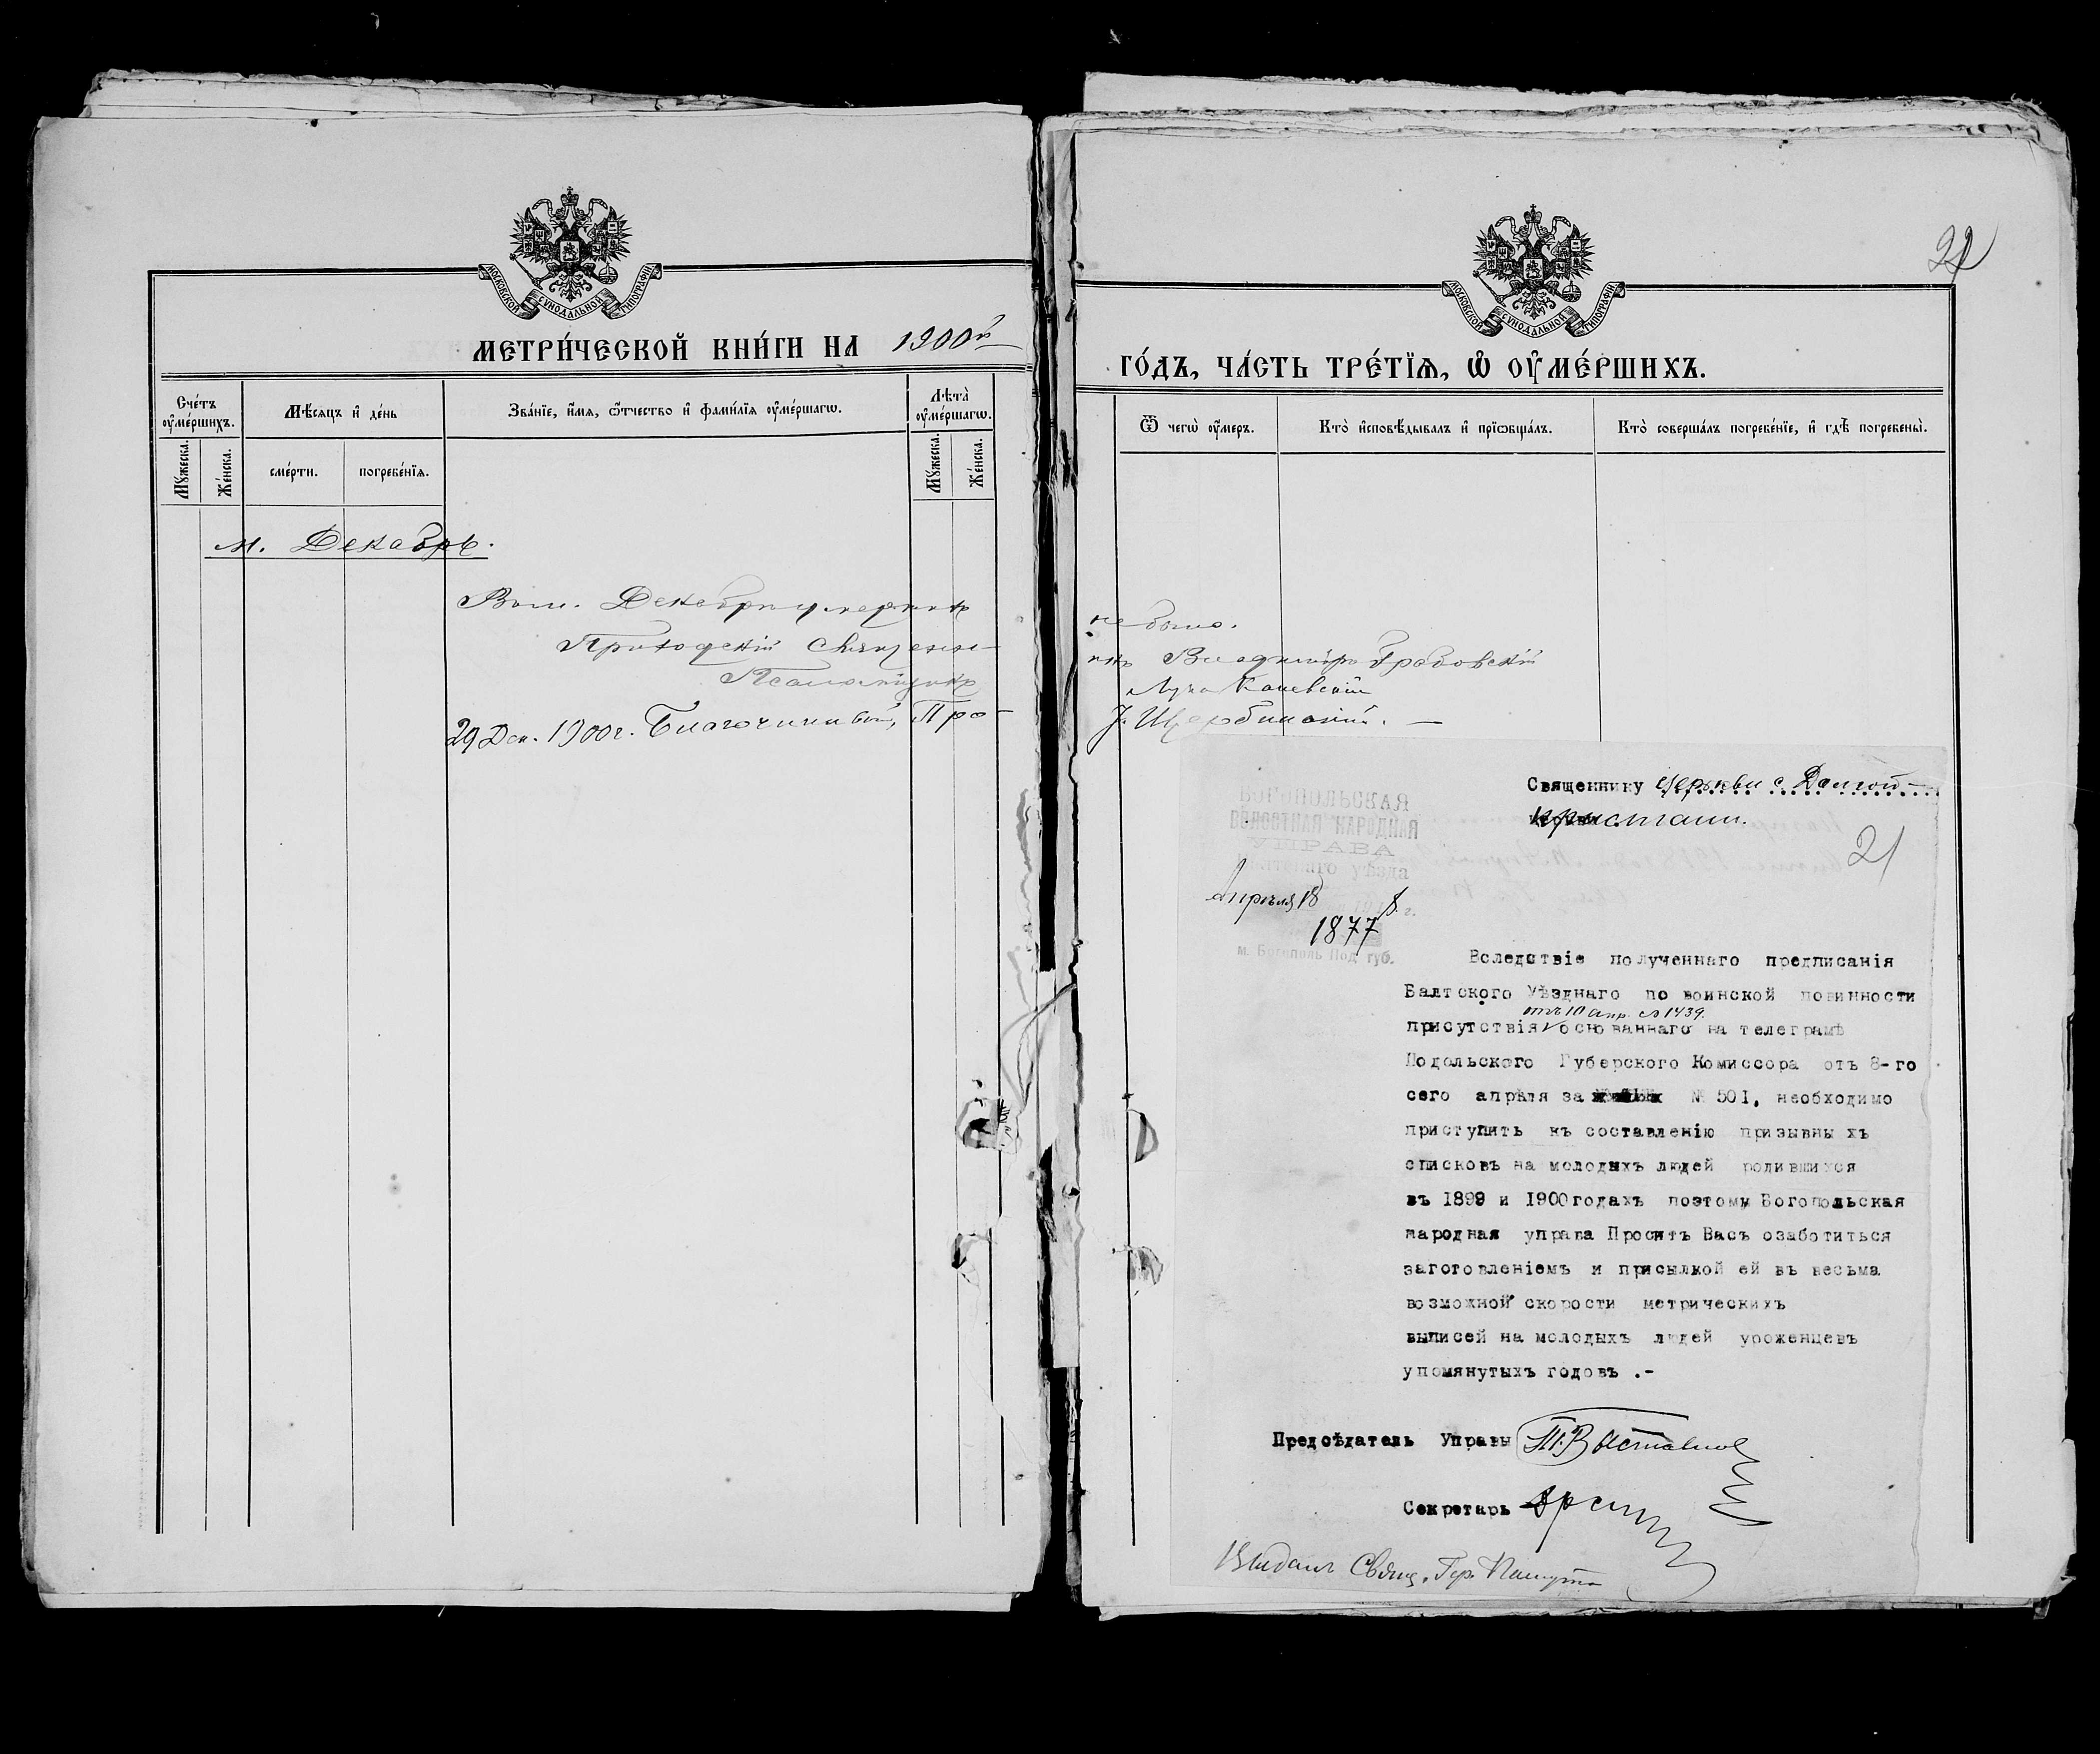 МОСКОВСКОЙ СѴНОДАЛЬНОЙ ТИПОГРАФІИ
МЕТРИ́ЧЕСКОЙ КНИ́ГИ НА 1900й
Сче́тъ ᲂу҆ме́ршихъ.
Мѣ́сяцъ и҆ де́нь
Зва́нїе, и҆́мя, ѻ҆́тчество и҆ фами́лїя ᲂу҆ме́ршагѡ.
Лѣ́та ᲂу҆ме́ршагѡ.
Мꙋ́жеска.
Же́нска.
сме́рти.
погребе́нїѧ.
Мꙋ́жеска.
Же́нска.
м. Декабрь.
Въ м. Декабрѣ умершихъ
Приходскій Священн-
Псаломщикъ
29 Дек. 1900 г. Благочинный, Про-
МОСКОВСКОЙ СѴНОДАЛЬНОЙ ТИПОГРАФІИ
22
ГО́ДЪ, ЧА́СТЬ ТРЕ́ТЇѦ, Ѡ҆ ОУ҆МЕ́РШИХЪ.
Ѿ чегѡ̀ ᲂу҆́меръ.
Кто̀ и҆сповѣ́дывалъ и҆ прїѡбща́лъ.
Кто̀ соверша́лъ погребе́нїе, и҆ гдѣ̀ погребены̀.
не было.
икъ Владиміръ Грабовскій
Лука Каневскій
І. Щербинскій. —
Священнику церкви с. Долгой-
пристани.
21
БОГОПОЛЬСКАЯ
ВОЛОСТНАЯ НАРОДНАЯ
УПРАВА
Балтскаго уѣзда
Апрѣля 18
8 г.
1877
м. Богополь Под. губ.
Вследствіе полученнаго предписанія
Балтского Уѣзднаго по воинской повинности
отъ 10 апр. за № 1439.
присутствія основаннаго на телеграмѣ
Подольского Губерского Комиссора отъ 8-го
сего апрѣля за № 501, необходимо
приступить къ составленію призывныхъ
списковъ на молодыхъ людей родившихся
въ 1899 и 1900 годахъ поэтому Богопольская
народная управа Проситъ Васъ озаботиться
заготовленіемъ и присылкой ей въ весьма
возможной скорости метрическихъ
выписей на молодыхъ людей уроженцевъ
упомянутыхъ годовъ .-
Предсѣдатель Управы
Секретарь
Выдалъ Свящ. Гр.